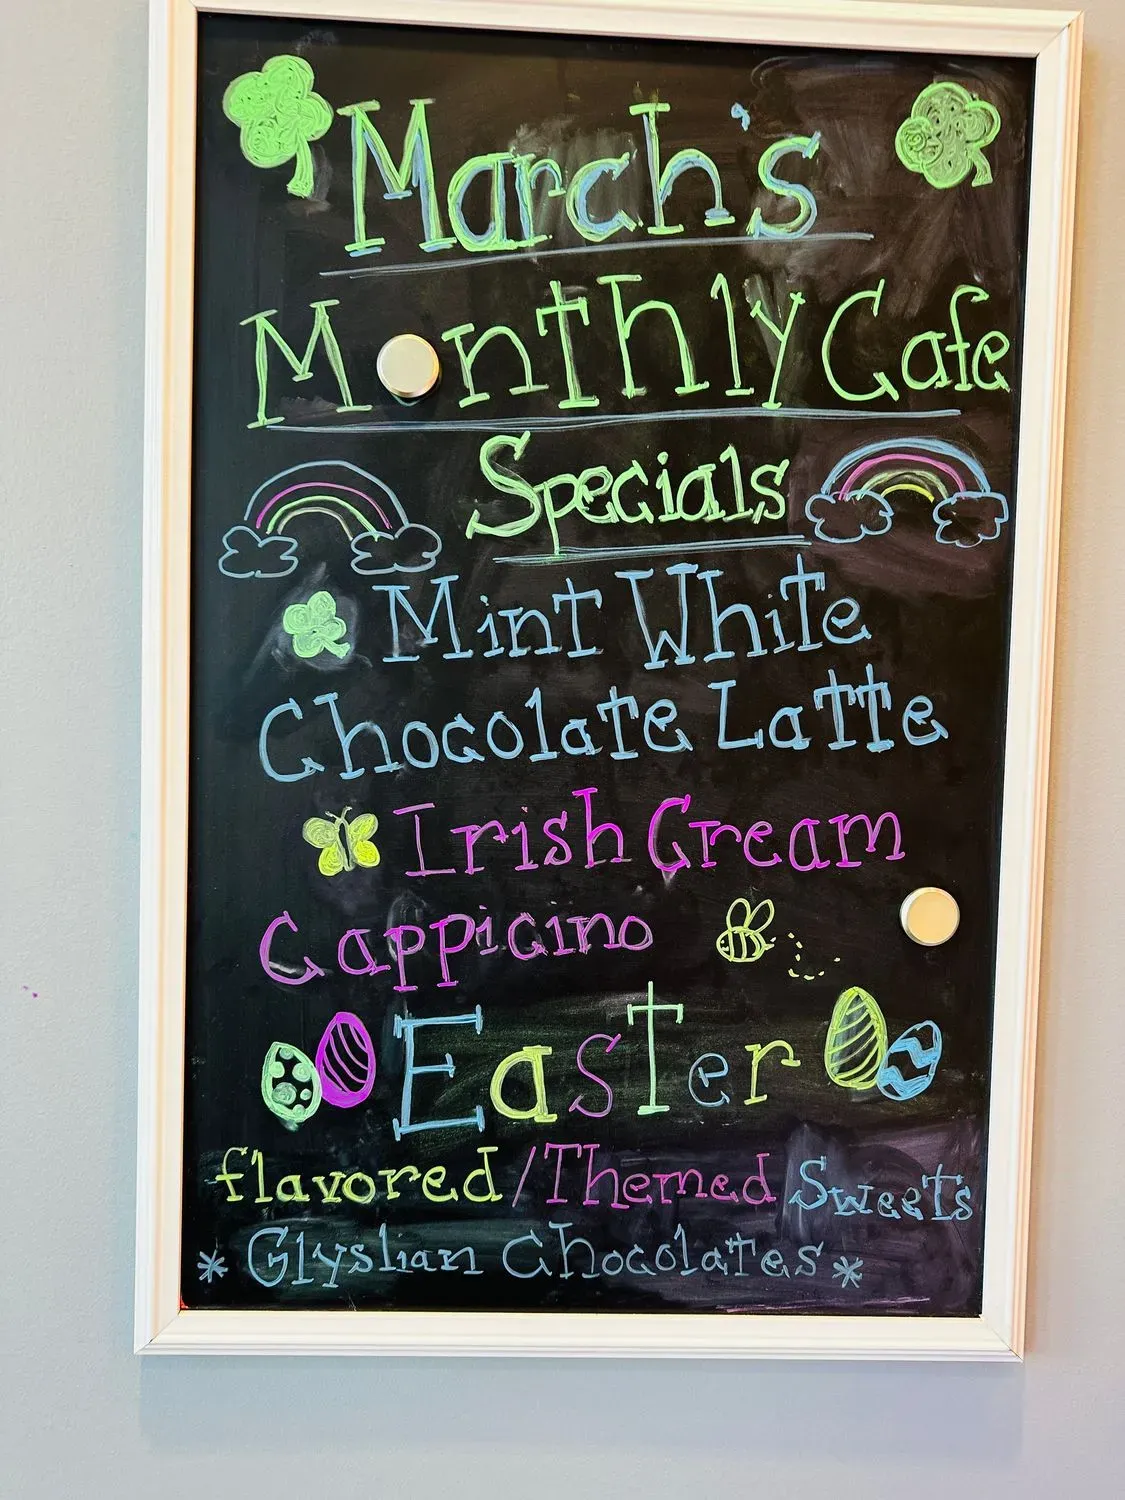 March's
Monthly Cafe
Specials
Mint White
Chocolate Latte
Irish Cream
Cappicino
Easter
flavored/Themed Sweets
* Glyslian Chocolates *